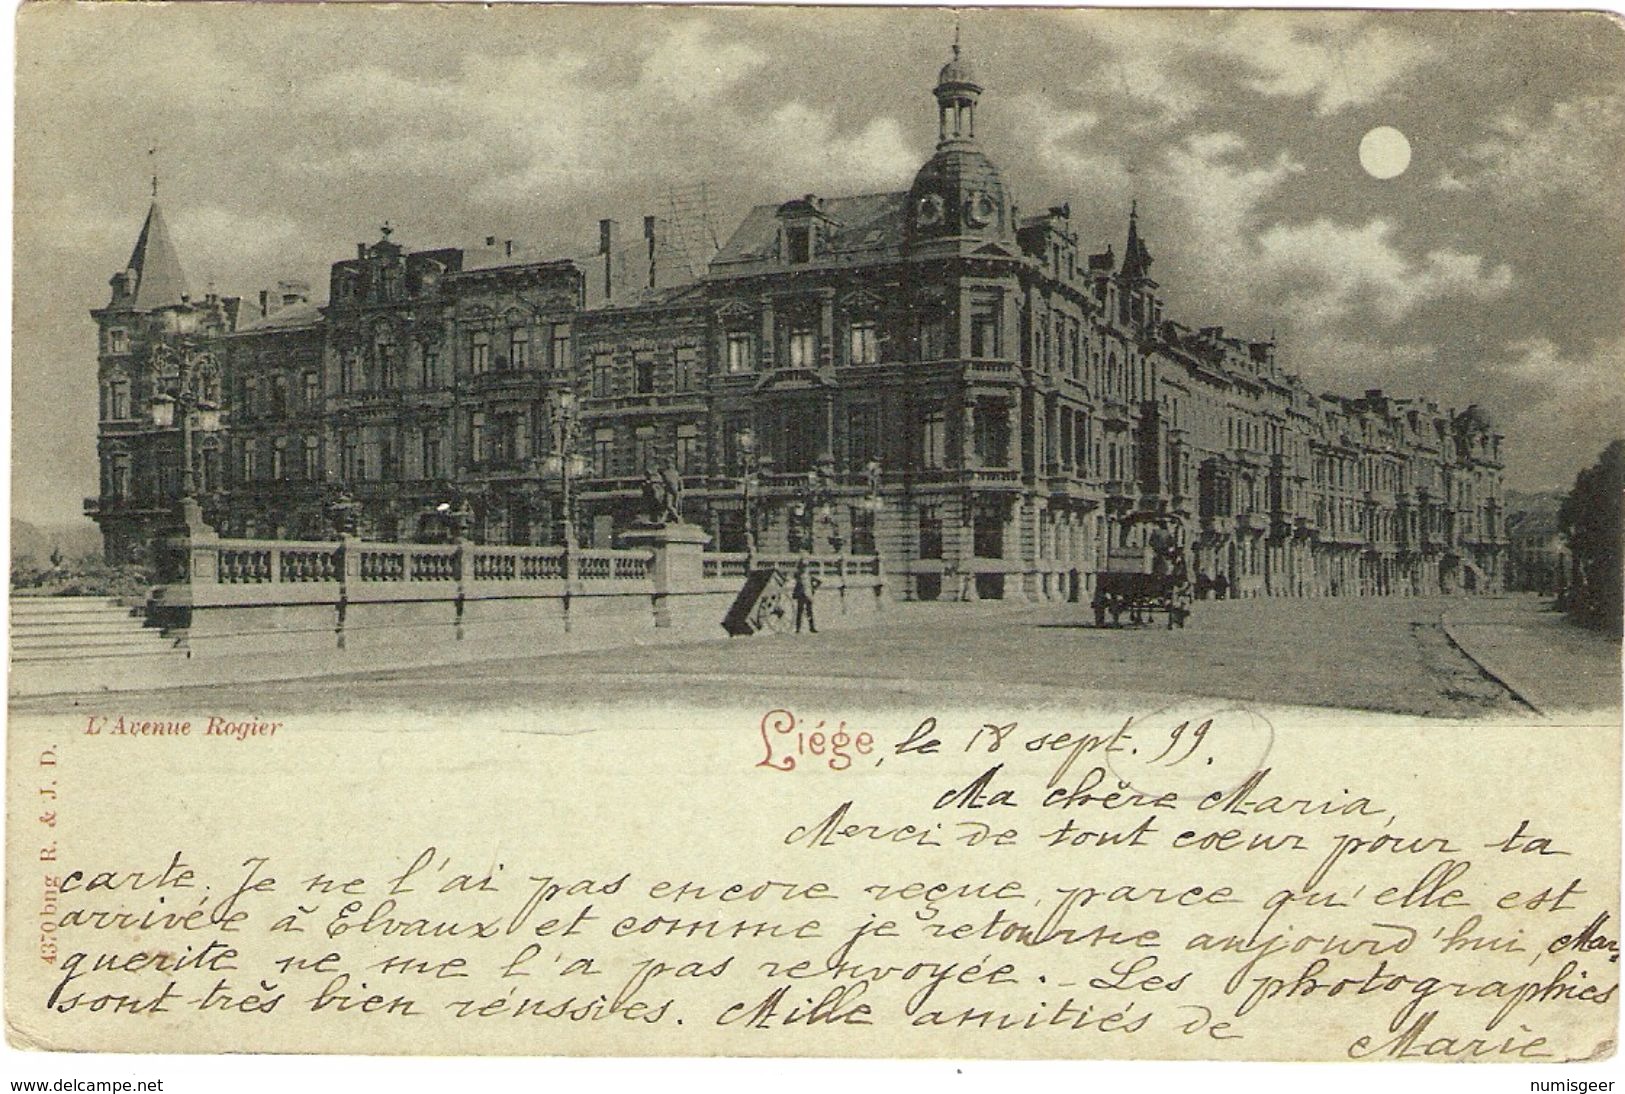 L'Avenue Rogier
Liége, le 18 sept. 99.
Ma chère Maria,
Merci de tout coeur pour ta
carte. Je ne l'ai pas encore reçue, parce qu'elle est
arrivée à Elvaux et comme je retourne aujourd'hui, Mar-
guerite ne me l'a pas renvoyée. - Les photographies
sont très bien réussies. Mille amitiés de
Marie
4370 bng R. & J. D.
www.delcampe.net
numisgeer